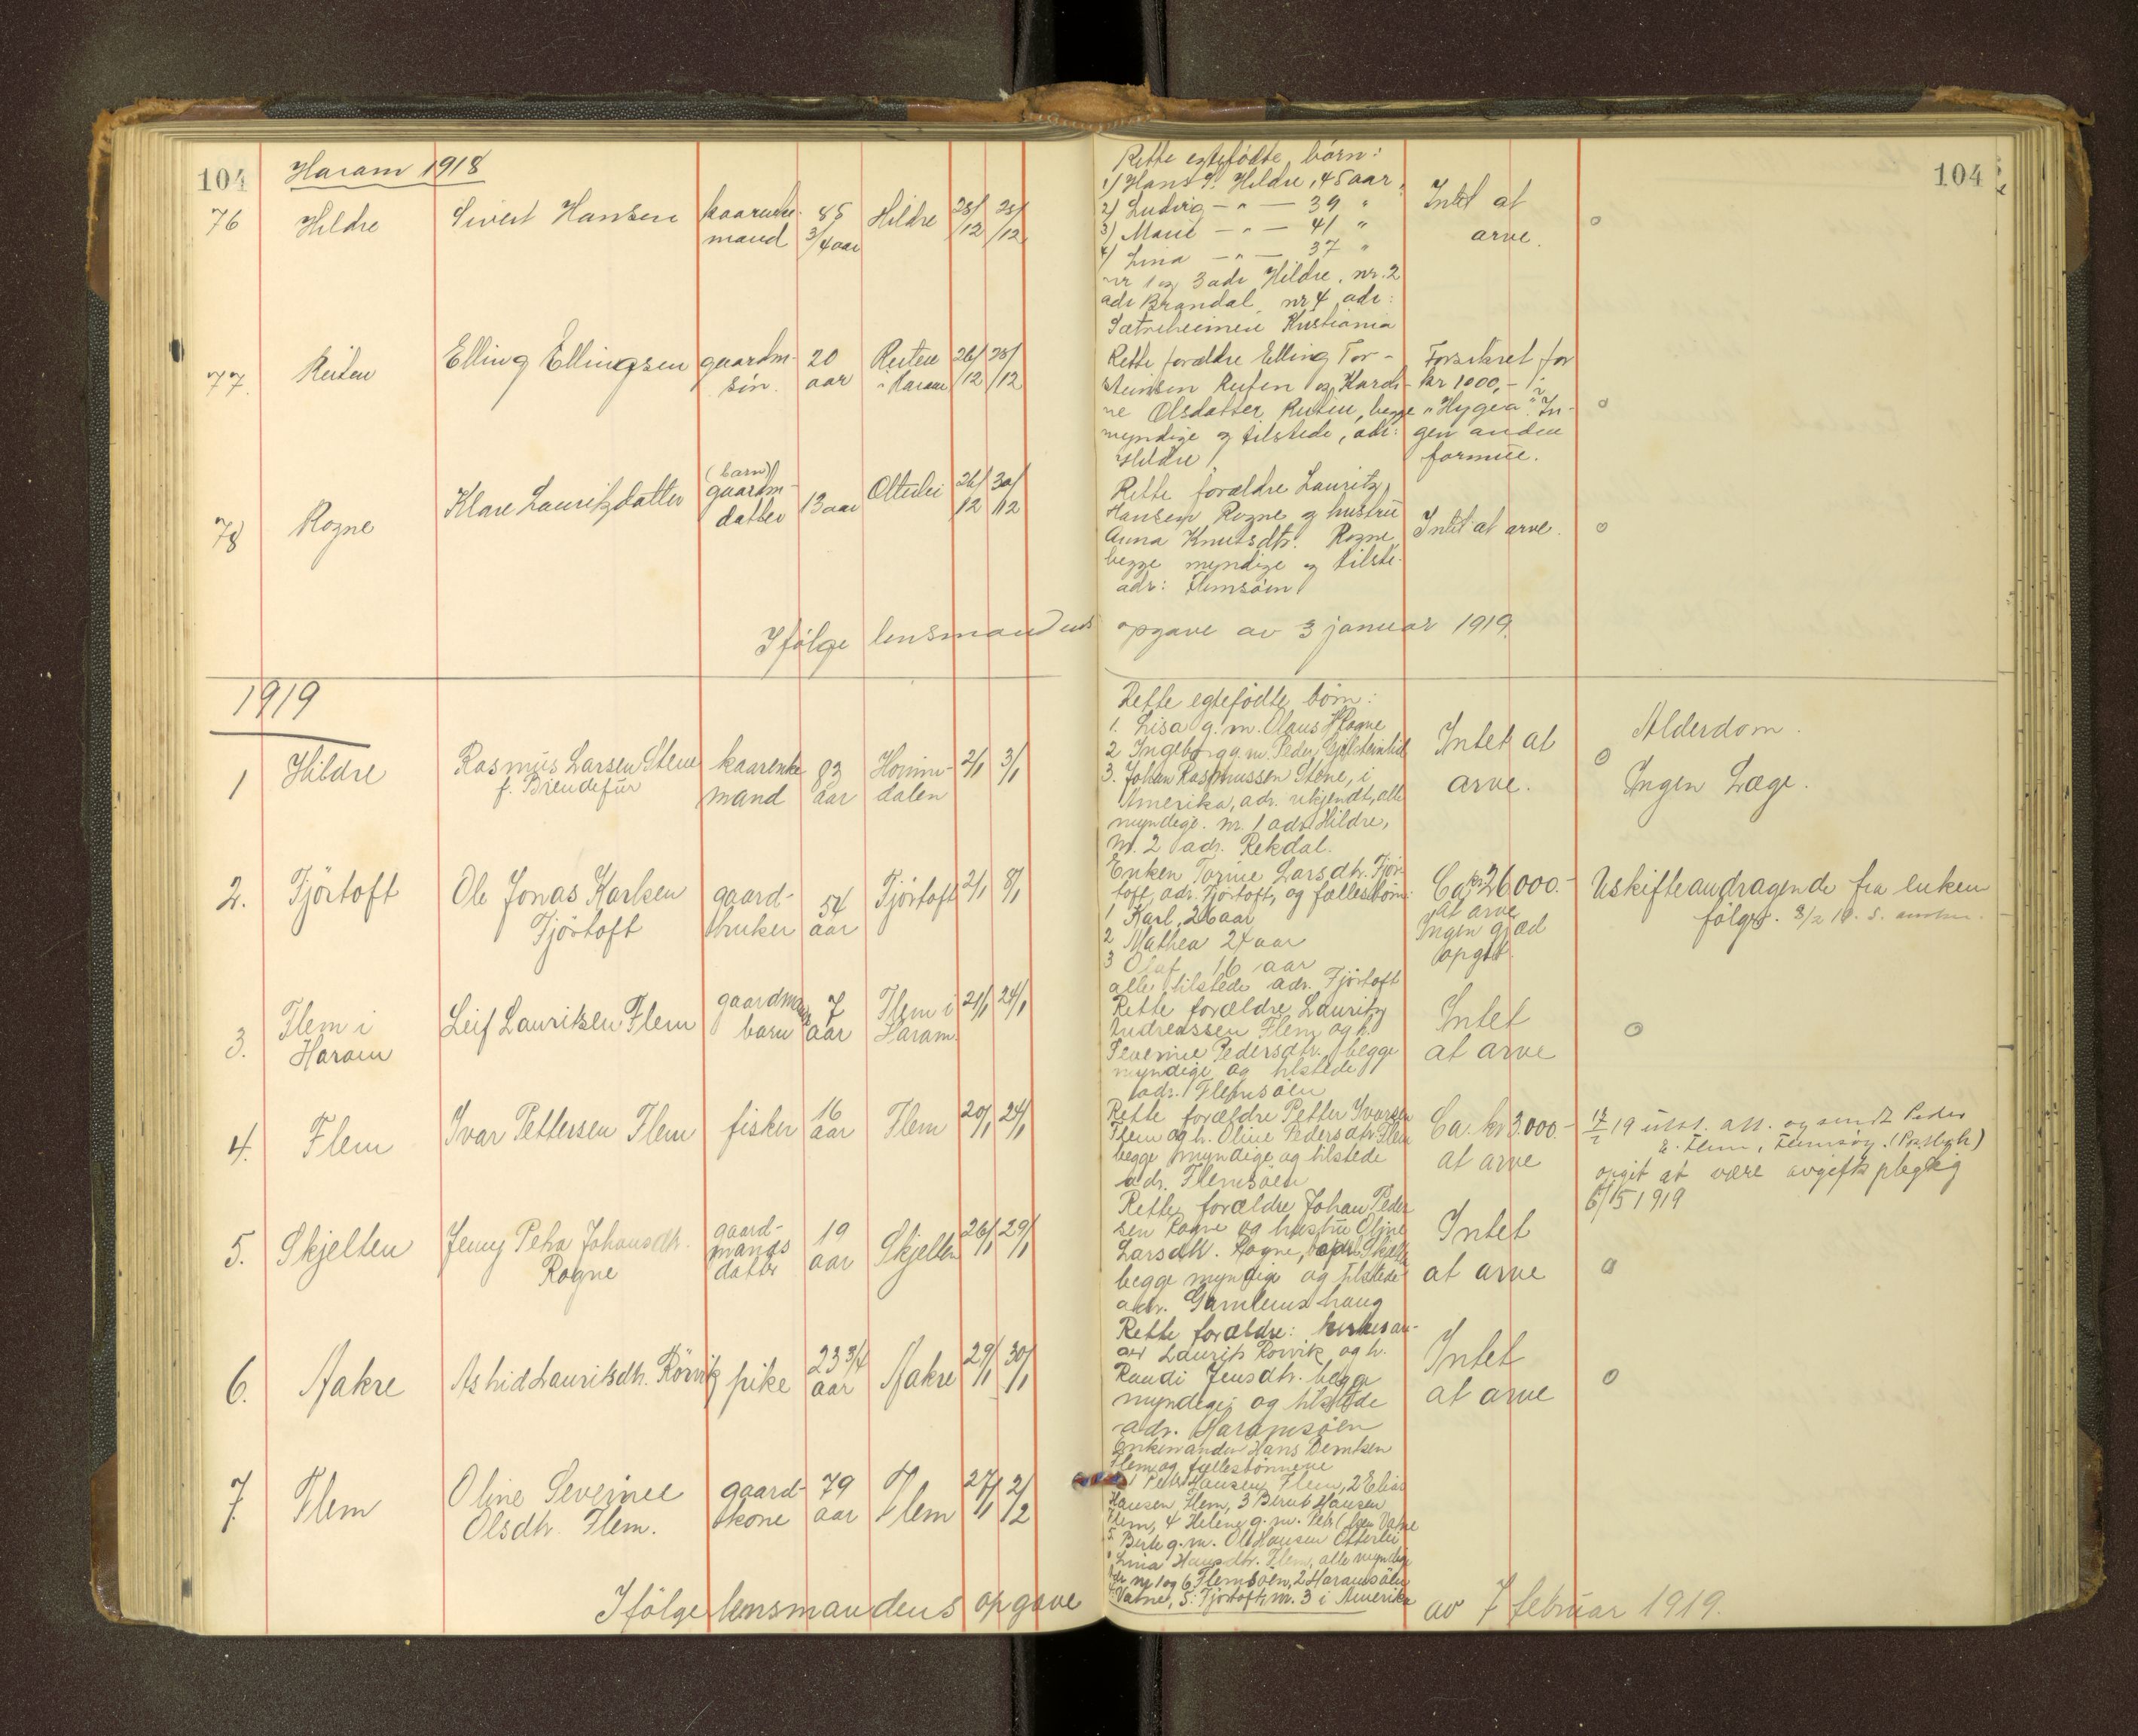 104
Haram 1918
76
Hildre
Sivert Hansen
kaarenke-
mand
85
3/4 aar
Hildre
23/12
28/12
Rette egtefödte börn:
1) Hans S. Hildre, 45 aar,
2) Ludvig — " — 39 "
3) Marie — " — 41 "
4) Lina — " — 37 "
nr 1 og 3 adr Hildre, nr. 2
adr Brandal, nr 4 adr:
Sætreheimen Kristiania
Intet at
arve.
o
104
77.
Reiten
Elling Ellingsen
gaardm-
sön.
20
aar
Reiten
i Haram
26/12
28/12
Rette forældre Elling Tor-
steinsen Reiten og Kardi-
ne Olsdatter Reiten, begge
myndige og tilstede, adr:
Hildre
Forsikret for
kr 1000,- i
"Hygea". In-
gen anden
formue.
o
78
Rogne
Klare Lauritzdatter
(barn)
gaardm-
datter
13 aar
Otterlei
26/12
30/12
Rette forældre Lauritz
Hansen Rogne og hustru
Anna Knutsdtr. Rogne,
begge myndige og tilste-
adr: Flemsöen
Intet at arve.
o
Ifölge lensmandens opgave av 3 januar 1919.
1919
1
Hildre
Rasmus Larsen Stene
f. Brendefur
kaarenke
mand
83
aar
Homme-
dalen
2/1
3/1
Rette egtefödte börn:
1. Lisa g. m. Olaus Rogne
2 Ingeborg g. m. Peder Gjelsteinlid
3. Johan Rasmussen Stene, i
Amerika, adr. ukjendt, alle
myndige. nr. 1 adr. Hildre,
nr. 2 adr. Rekdal.
Intet at
arve.
o
Alderdom.
Ingen Læge.
2.
Fjörtoft
Ole Jonas Karlsen
Fjörtoft
gaard-
bruker
54
aar
Fjörtoft
2/1
8/1
Enken Torine Larsdtr. Fjör-
toft, adr. Fjörtoft, og fællesbörn:
1 Karl, 26 aar
2 Mathea 24 aar
3 Olaf 16 aar
alle tilstede adr. Fjörtoft
Ca. kr 26000.-
at arve
Ingen gjæld
opgit.
Uskifteandragende fra enken
fölger. 8/2 19. s.
3.
Flem i
Haram
Leif Lauritsen Flem
gaardmands
barn
7
aar
Flem i
Haram.
21/1
24/1
Rette forældre Lauritz
Andreassen Flem og h.
Severine Pedersdtr., begge
myndige og tilstede
adr. Flemsöen
Intet
at arve
o
4.
Flem
Ivar Pettersen Flem
fisker
16
aar
Flem
20/1
24/1
Rette forældre Petter Ivarsen
Flem og h. Oline Pedersdtr. Flem
begge myndige og tilstede
adr. Flemsöen
Ca. kr 3.000.-
at arve
17/2 19 utst. att. og sendt Peder
E. Flem, Flemsöy.
opgit at være avgiftspligtig
6/5 1919
5.
Skjelten
Jenny Petra Johansdtr.
Rogne
gaard-
mands
datter
19
aar
Skjelten
26/1
29/1
Rette forældre Johan Peder
sen Rogne og hustru Oline
Larsdtr. Rogne, adr. Skjelten
begge myndige og tilstede
adr. Gamlemshaug
Intet
at arve
o
6.
Aakre
Astrid Lauritsdtr. Rörvik
pike
23 3/4
aar
Aakre
29/1
30/1
Rette forældre: kirkesan-
ger Laurits Rörvik og h.
Randi Jensdtr. begge
myndige og tilstede
adr. Haramsöen
Intet
at arve
o
7.
Flem
Oline Severinee
Olsdtr. Flem.
gaard-
kone
79
aar
Flem
27/1
2/2
Enkemanden Hans Berntsen
Flem og fællesbörnene
1 Peder Hansen Flem, 2 Elias
Hansen Flem, 3 Bernt Hansen
Flem, 4 Helene g. m. Petr. Vatne
5. Berte g. m. Ole Hansen Otterlei
6 Lina Hansdtr. Flem, alle myndige
adr nr 1 og 6 Flemsöen, 2 Haramsöen
4: Vatne, 5: Fjörtoft, nr. 3 i Amerika
Ifölge lensmandens opgave av 7 februar 1919.